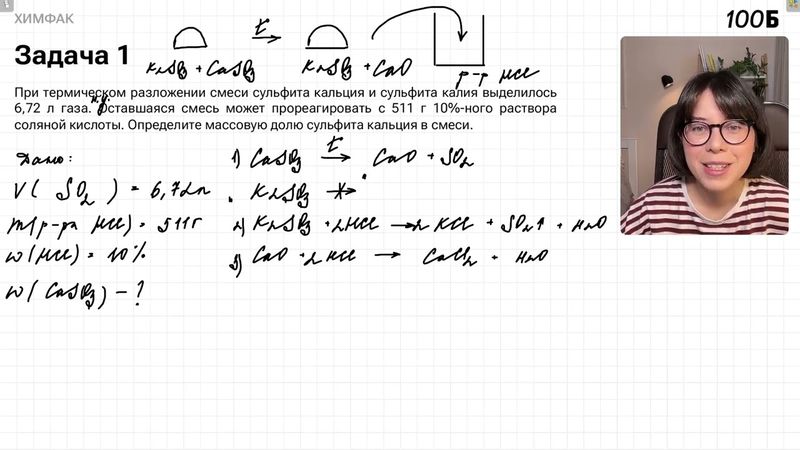 ХИМФАК
100Б
Задача 1
K₂SO₃ + CaSO₃ t→ K₂SO₃ + CaO
р-р HCl
При термическом разложении смеси сульфита кальция и сульфита калия выделилось
н.у.
6,72 л газа. Оставшаяся смесь может прореагировать с 511 г 10%-ного раствора
соляной кислоты. Определите массовую долю сульфита кальция в смеси.
Дано:
V( SO₂ ) = 6,72л
m(р-ра HCl) = 511г
w(HCl) = 10%
w( CaSO₃) - ?
1) CaSO₃ t→ CaO + SO₂
K₂SO₃ ↛
2) K₂SO₃ + 2HCl → 2KCl + SO₂↑ + H₂O
3) CaO + 2HCl → CaCl₂ + H₂O